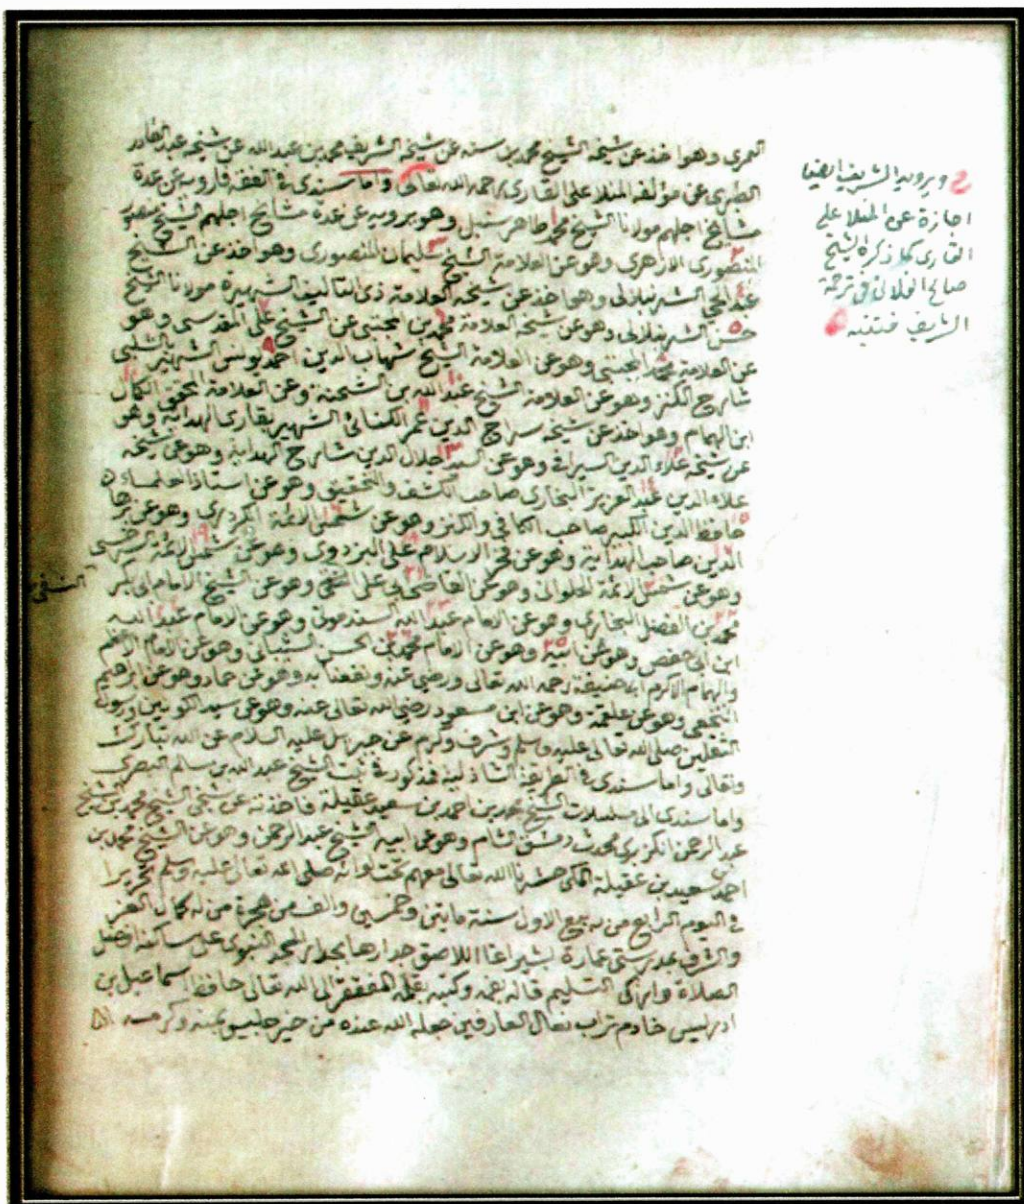 العمرى وهو اخذ عن شيخه الشيخ محمد بن سنه عن شيخه الشريف محمد بن عبد الله عن شيخه عبد القادر
الطبرى عن مؤلفه المنلا على القارى رحمه الله تعالى واما سندى فى الفقه فارويه عن عدة
مشايخ اجلهم مولانا الشيخ محمد طاهر سنبل وهو يرويه عن عدة مشايخ اجلهم الشيخ منصور
المنصورى الازهرى وهو عن العلامة الشيخ سليمان المنصورى وهو اخذ عن الشيخ
عبد الحى الشرنبلالى وهو اخذ عن شيخه العلامة ذى التاليف الشهيرة مولانا الشيخ
حسن الشرنبلالى وهو عن شيخه العلامة محمد بن المحبى عن الشيخ على المقدسى وهو
عن العلامة محمد المحبتى وهو عن العلامة الشيخ شهاب الدين احمد يونس الشهير بالشلبى
شارح الكنز وهو عن العلامة الشيخ عبد الله بن الشحنة وعن العلامة المحقق الكمال
ابن الهمام وهو اخذ عن شيخه سراج الدين عمر الكنانى الشهير بقارى الهداية وهو
عن شيخه علاء الدين السيرافى وهو عن السيد جلال الدين شارح الهداية وهو عن شيخه
علاء الدين عبد العزيز البخارى صاحب الكشف والتحقيق وهو عن استاذ العلماء
حافظ الدين الكبير صاحب الكافى والكنز وهو عن شمس الائمة الكردرى وهو عن برهان
الدين صاحب الهداية وهو عن فخر الاسلام على البزدوى وهو عن شمس الائمة السرخسى
وهو عن شمس الائمة الحلوانى وهو عن القاضى ابى على النسفى وهو عن الشيخ الامام ابى بكر
النسفى
محمد بن الفضل البخارى وهو عن الامام عبد الله السندمونى وهو عن الامام عبد الله
ابن ابى حفص وهو عن ابيه وهو عن الامام محمد بن الحسن الشيبانى وهو عن الامام الاعظم
والهمام الاكرم ابى حنيفة رحمه الله تعالى ورضى عنه ونفعنا به وهو عن حماد وهو عن ابرهيم
النخعى وهو عن علقمة وهو عن ابن مسعود رضى الله تعالى عنه وهو عن سيد الكونين ورسول
الثقلين صلى الله تعالى عليه وسلم وشرف وكرم عن جبرايل عليه السلام عن الله تبارك
وتعالى واما سندى فى الطريقة الشاذلية فمذكور فى ثبت الشيخ عبد الله بن سالم البصرى
واما سندى الى مسلسلات الشيخ محمد بن احمد بن سعيد عقيلة فاخذته عن شيخى الشيخ محمد بن الشيخ
عبد الرحمن الكزبرى محدث دمشق الشام وهو عن ابيه الشيخ عبد الرحمن وهو عن الشيخ محمد بن
احمد سعيد بن عقيلة المكى حشرنا الله تعالى معهم تحت لوائه صلى الله تعالى عليه وسلم تحريرا
فى اليوم الرابع من ربيع الاول سنة مايتين وخمسين والف من هجرة من له كمال العز
والشرف بمدرستى عمارة بشير اغا اللاصق جدارها بجدار المسجد النبوى على ساكنه افضل
الصلاة وازكى التسليم قاله بفمه وكتبه بقلمه المفتقر الى الله تعالى حافظ اسماعيل بن
ادريس خادم تراب نعال العارفين جعله الله عنده من خير جليس بمنه وكرمه
ح ويرويه الشريف ايضا
اجازة عن المنلا على
القارى كما ذكره الشيخ
صالح الفلانى فى ترجمة
الشريف فتنبه